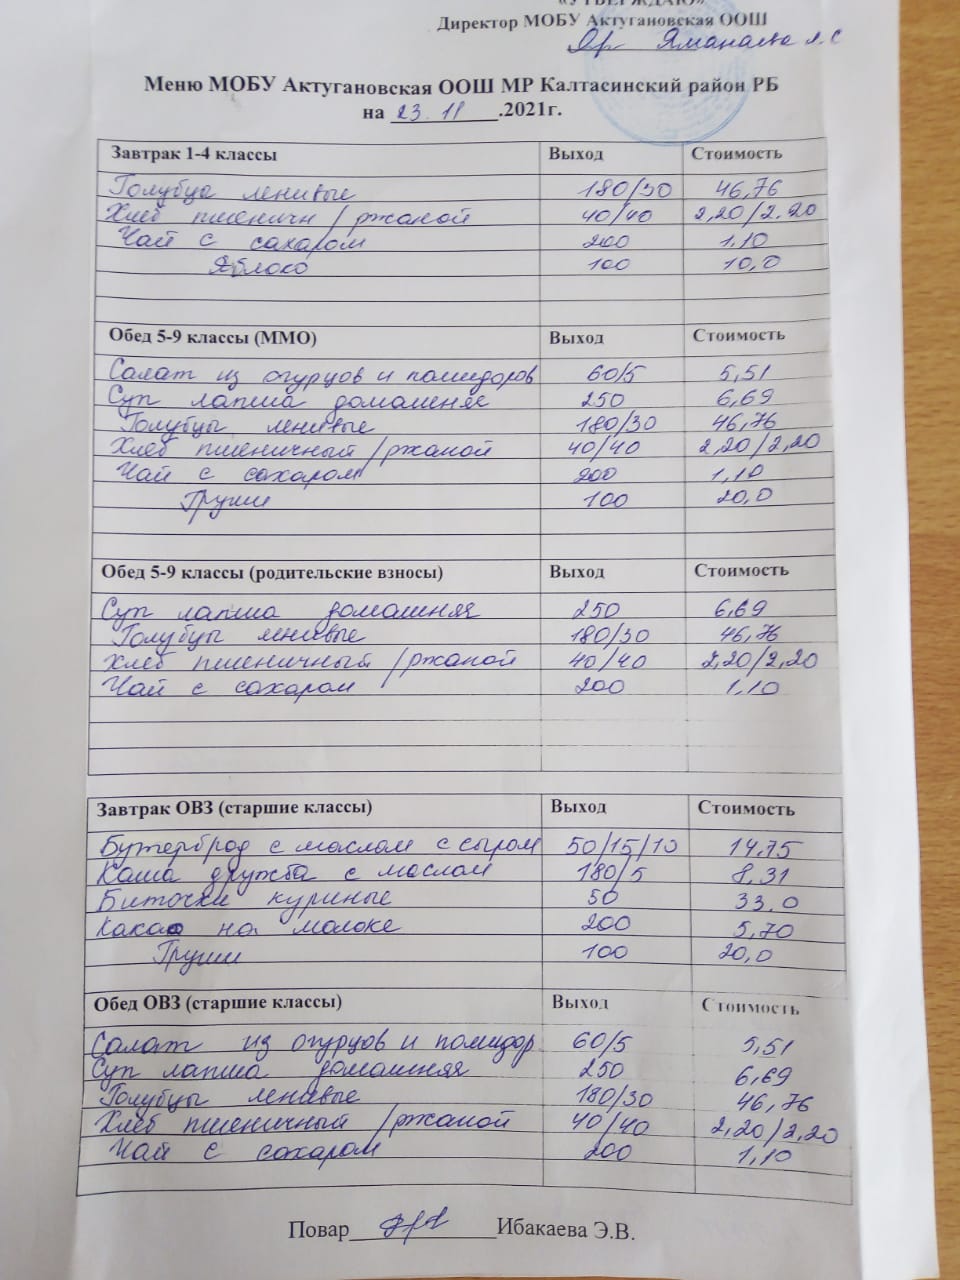 «УТВЕРЖДАЮ»
Директор МОБУ Актугановская ООШ
Яманаева Л.С
Меню МОБУ Актугановская ООШ МР Калтасинский район РБ
на 23.11.2021г.
Завтрак 1-4 классы Выход Стоимость
Голубцы ленивые 180/30 46,76
Хлеб пшеничн/ржаной 40/40 2,20/2.20
Чай с сахаром 200 1,10
Яблоко 100 10,0
Обед 5-9 классы (ММО) Выход Стоимость
Салат из огурцов и помидоров 60/5 5,51
Суп лапша домашняя 250 6,69
Голубцы ленивые 180/30 46,76
Хлеб пшеничный/ржаной 40/40 2,20/2,20
Чай с сахаром 200 1,10
Груши 100 20,0
Обед 5-9 классы (родительские взносы) Выход Стоимость
Суп лапша домашняя 250 6,69
Голубцы ленивые 180/30 46,76
Хлеб пшеничный/ржаной 40/40 2,20/2,20
Чай с сахаром 200 1,10
Завтрак ОВЗ (старшие классы) Выход Стоимость
Бутерброд с маслом с сыром 50/15/10 14.75
Каша дружба с маслом 180/5 8,31
Биточки куриные 50 33,0
Какао на молоке 200 5,70
Груши 100 20,0
Обед ОВЗ (старшие классы) Выход Стоимость
Салат из огурцов и помидор 60/5 5,51
Суп лапша домашняя 250 6,69
Голубцы ленивые 180/30 46,76
Хлеб пшеничный/ржаной 40/40 2,20/2,20
Чай с сахаром 200 1,10
Повар Ибакаева Э.В.